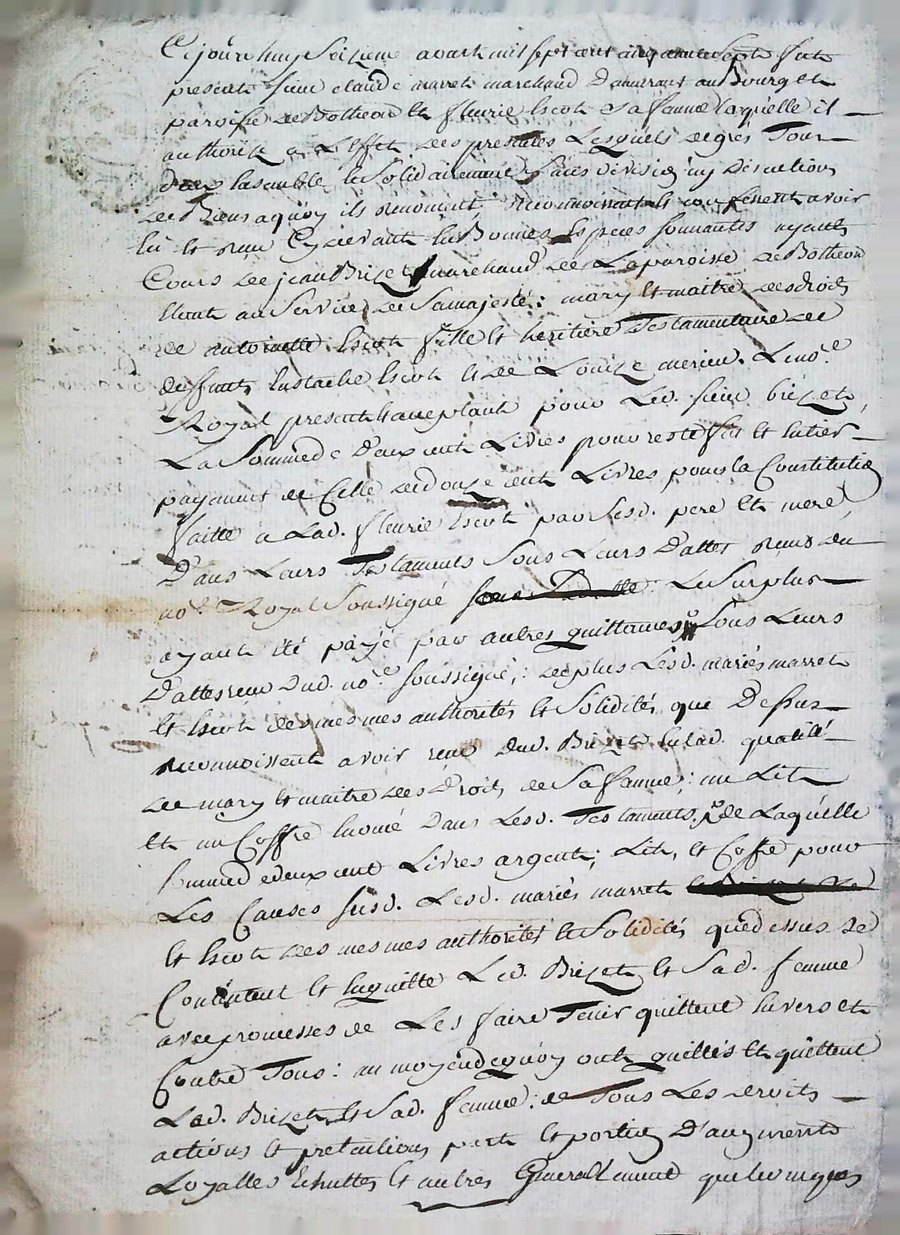 Cejourdhuy Seizieme avant mil sept cent cinquante Sept fut
present Sieur claude marret marchand demeurant au Bourg et
paroisse de Botheon et fleurie hecot Sa femme laquelle il
authorise a L'effet des presentes Lesquels de gres Tour
deux Ensemble et Solidairement Sans division ny discution
de Biens aquoy ils renoncent, reconnoissent et confessent avoir
Eü et receu Cydevant En Bonnes Especes Sonnantes ayants
Cours de jean Brizet marchand de La paroisse de Botheon
Etant au Service de Sa majesté: mary et maitre des droits
de antoinette hecot fille et heritiere Testamentaire de
deffunts Eustache hecot et de Louise merieu. Le no.re
Royal present et acceptant pour Led. Sieur brizet,
La Somme de deux cent Livres pour reste fin et Entier
payement de Celle de douze cent Livres pour la Constitution
faitte a Lad. fleurie hecot par Sesd. pere et mere
Dans Leurs Testaments Sous Leurs Dattes receus du
no.re Royal Soussigné Le Surplus
ayant été payé par autres quittances Sous Leurs
Dattes receu Dud. no.re Soussigné; de plus Lesd. mariés marret
Et hecot des mesmes authorités et Solidités que Dessus
reconnoissent avoir receu dud. Brizet En lad. qualité
de mary et maitre des Droits de Sa femme; un Lit
et un Coffre Enoncé Dans Lesd. Testaments. de Laquelle
Somme de deux cent Livres argent; Lit, et Coffre pour
Les Causes Susd. Lesd. mariés marret
Et hecot des mesmes authorités et Solidités que dessus Se
Contentent et En quitte Led. Brizet et Sad. femme
avec promesses de Les faire Tenir quittent Envers et
Contre Tous: au moyen de quoy ont quittés et quittent
Led. Brizet et Sad. femme: de Tous Les droits
actions et pretentions part et portion D'augments
Loyalles Echuttes et autres Generallement quelconques